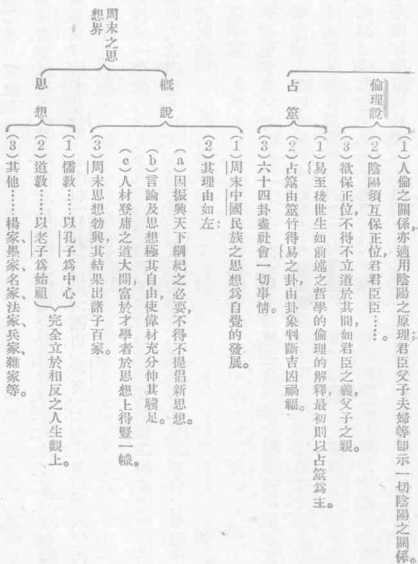 倫理說
(1)人倫之關係,亦適用陰陽之原理,君臣父子夫婦等,卽示一切陰陽之關係。
(2)陰陽須互保正位,君君臣臣……。
(3)欲保正位,不得不立道於其間,如君臣之義,父子之親。
占筮
(1)易至後世生如前述之哲學的倫理的解釋,最初則以占筮爲主。
(2)占筮由筮竹得易之卦,由卦象判斷吉凶禍福。
(3)六十四卦盡社會一切事情。
周末之思想界
概說
(1)周末中國民族之思想爲自覺的發展。
(2)其理由如左:
(a)因振興天下綱紀之必要,不得不提倡新思想。
(b)言論及思想極其自由,使偉材充分伸其驥足。
(c)人材登庸之道大開,富於才學者於思想上得豎一幟。
(3)周末思想勃興,其結果出諸子百家。
思想
(1)儒敎……以孔子爲中心
(2)道敎……以老子爲始祖
完全立於相反之人生觀上。
(3)其他……楊家、墨家、名家、法家、兵家、雜家等。